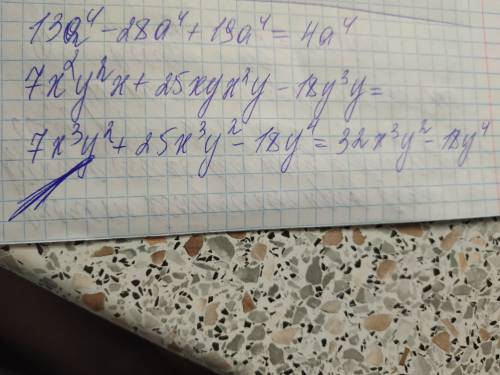 13a⁴ - 28a⁴ + 19a⁴ = 4a⁴
7x²y²x + 25xyx²y - 18y³y =
7x³y² + 25x³y² - 18y⁴ = 32x³y² - 18y⁴